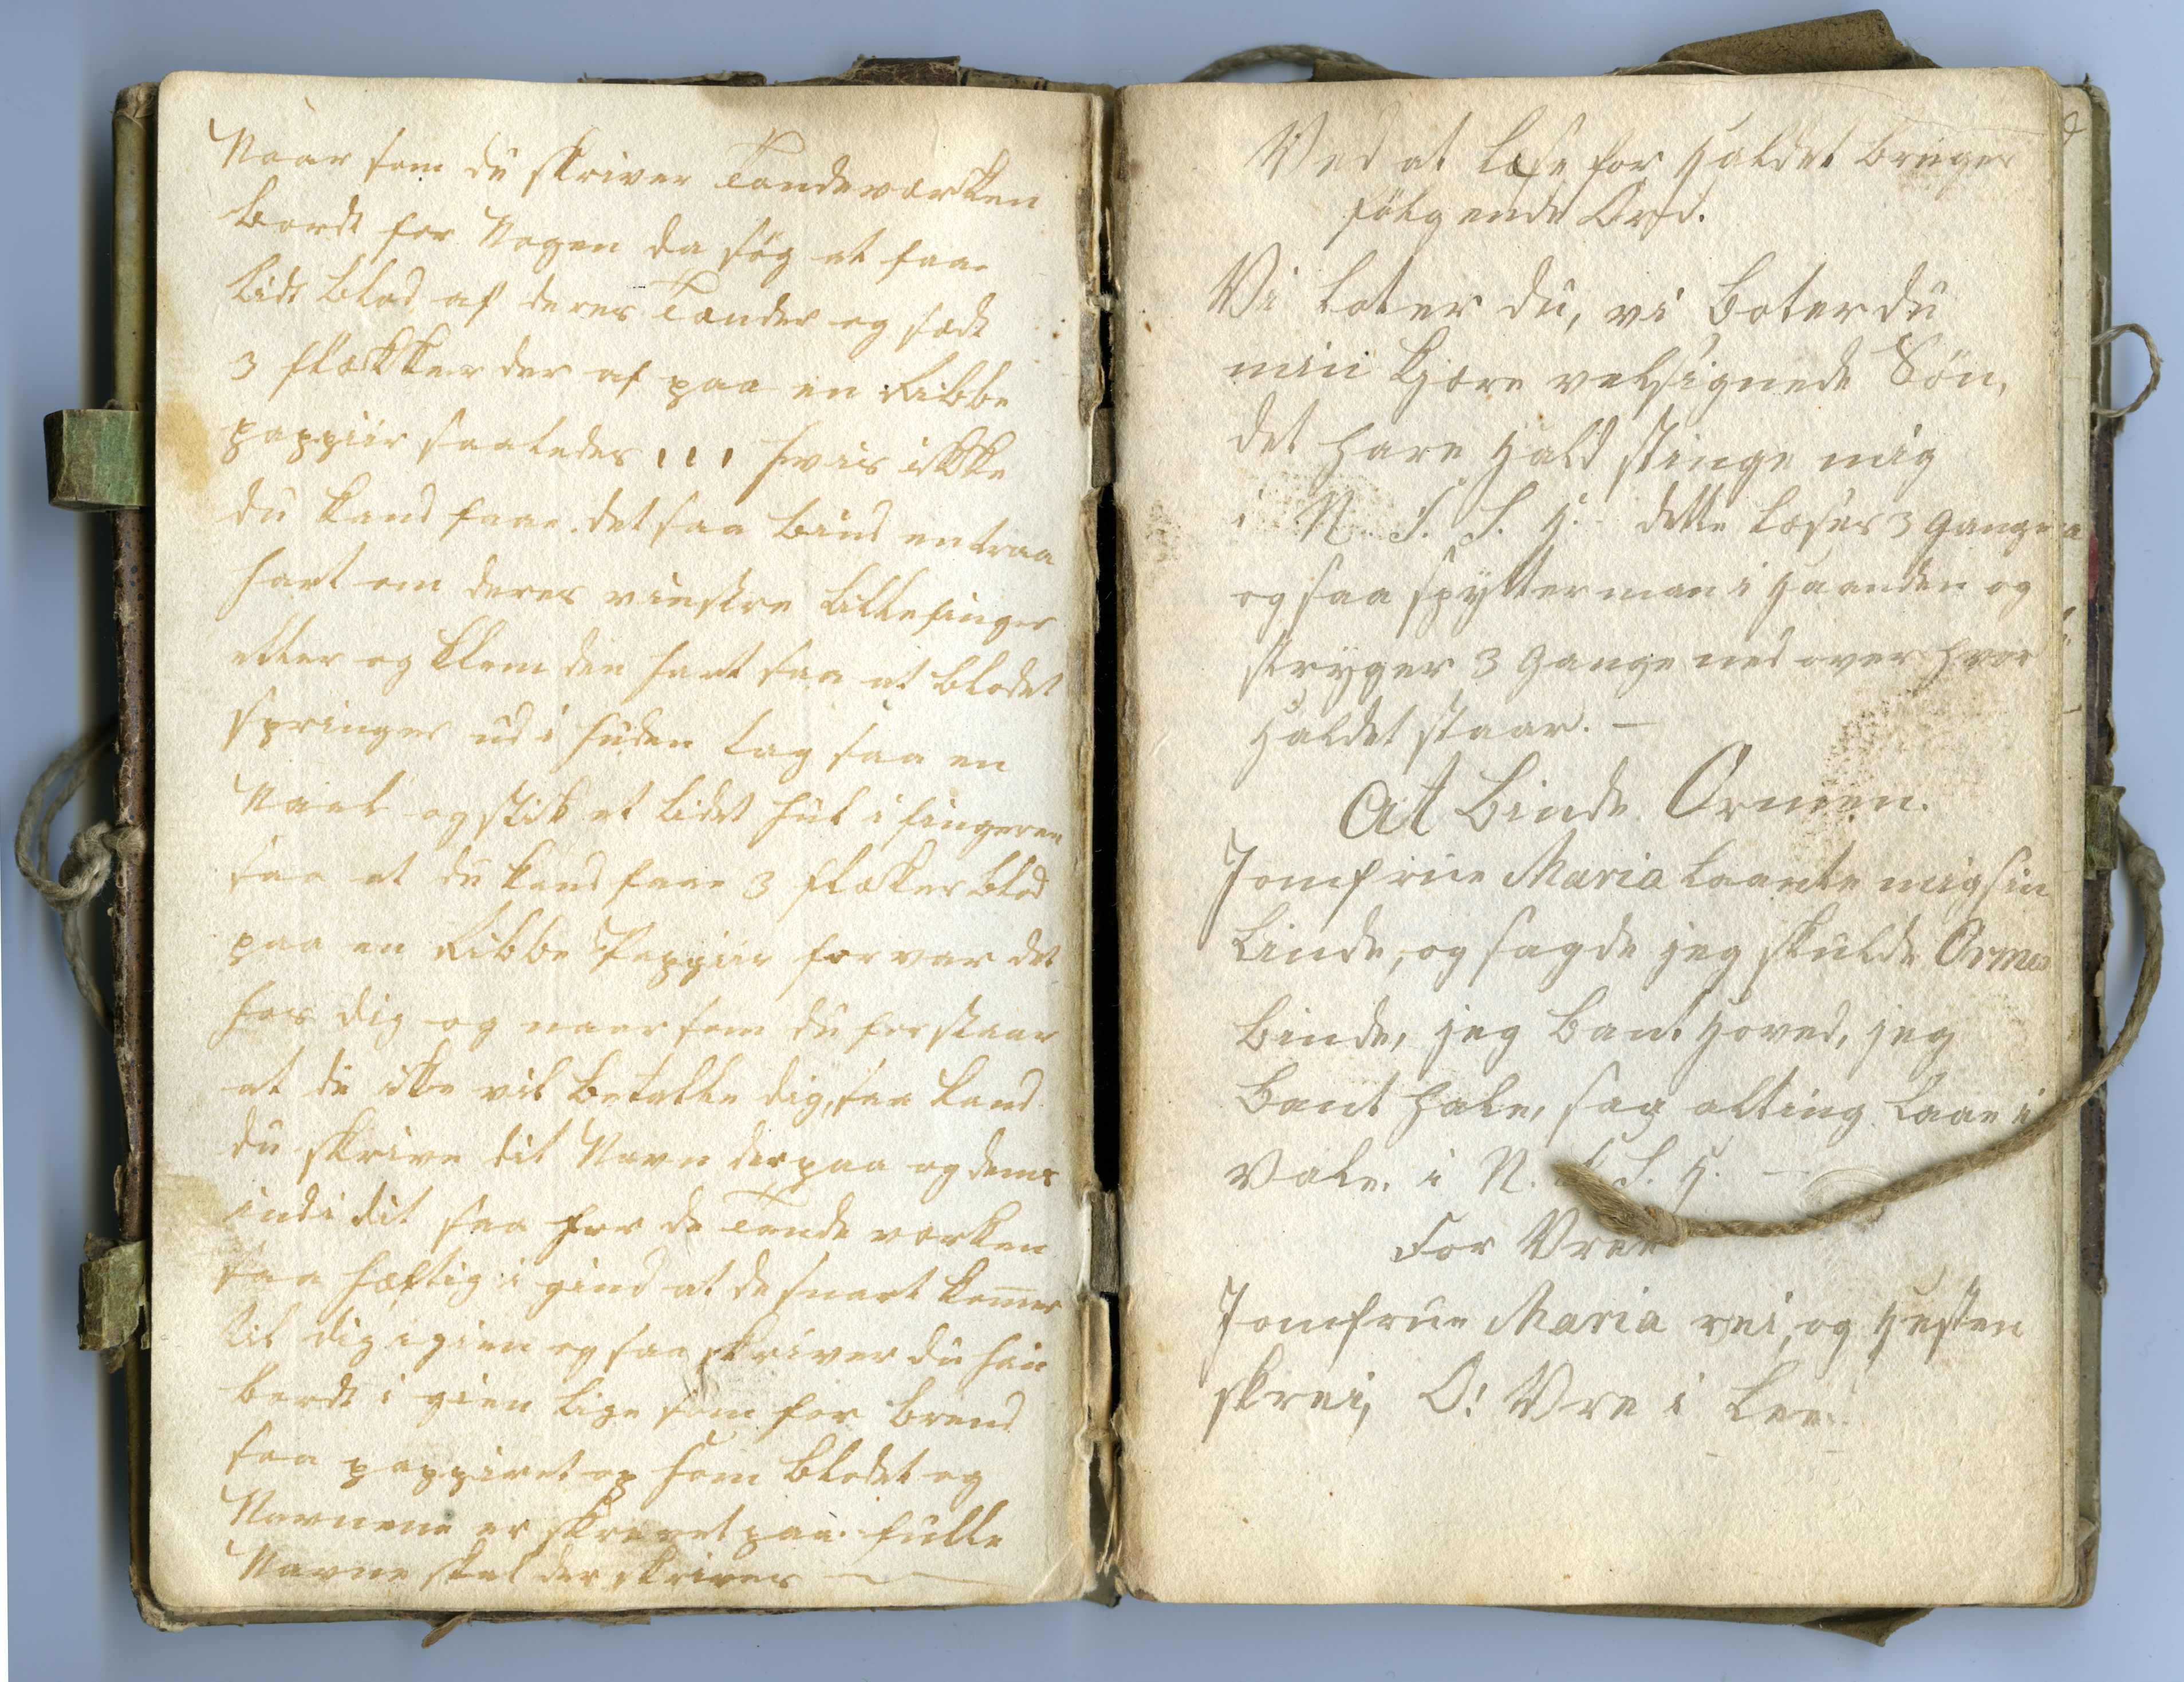 Naar som du skriver Tandeværken
bordt for Nogen da søg at faae
lidt blod af deres Tænder og sædt
3 flækker der af paa en Ribbe
pappiir saaledes ,,, hvis ikke
du kand faae det saa bind en traa
hart om deres vinstre lillefinger
etter og klem den hart saa at blodet
springer ud i huden tag saa en
Naal og stik et lidet hul i fingeren
saa at du kand faae 3 flækker blod
paa en Ribbe Pappiir forvar det
hos dig og naar som du forstaar
at di ikke vil betalle dig, saa kand
du skrive dit Navn der paa og deres
indi dit saa faar de Tande værken
saa hæftig i gind at de snart kom̅er
til dig igien og saa skriver du hin
bordt i gien lige som før brend
saa pappiret op som blodet og
Navnene er skrevet paa. fulle
Navne skal der skrives —
Ved at læse for Haldet bruges
følgende Ord.
Vi loter du, vi boter du
min kjære velsignede Søn,
det hare Hald stinge mig
i N. F. S. H. dette læses 3 Gange
og saa spytter man i Haanden og
stryger 3 Gange ned over hvor
Haldet staar. —
At binde Ormen.
Jomfrue Maria laante mig sin
Linde, og sagde jeg skulde Ormen
binde, jeg bant Hoved, jeg
bant Hale, sag alting laae i
Vale. i N. F. S. H. —
For Vree
Jomfrue Maria rei, og Hesten
skrei, O! Vre i Lee.